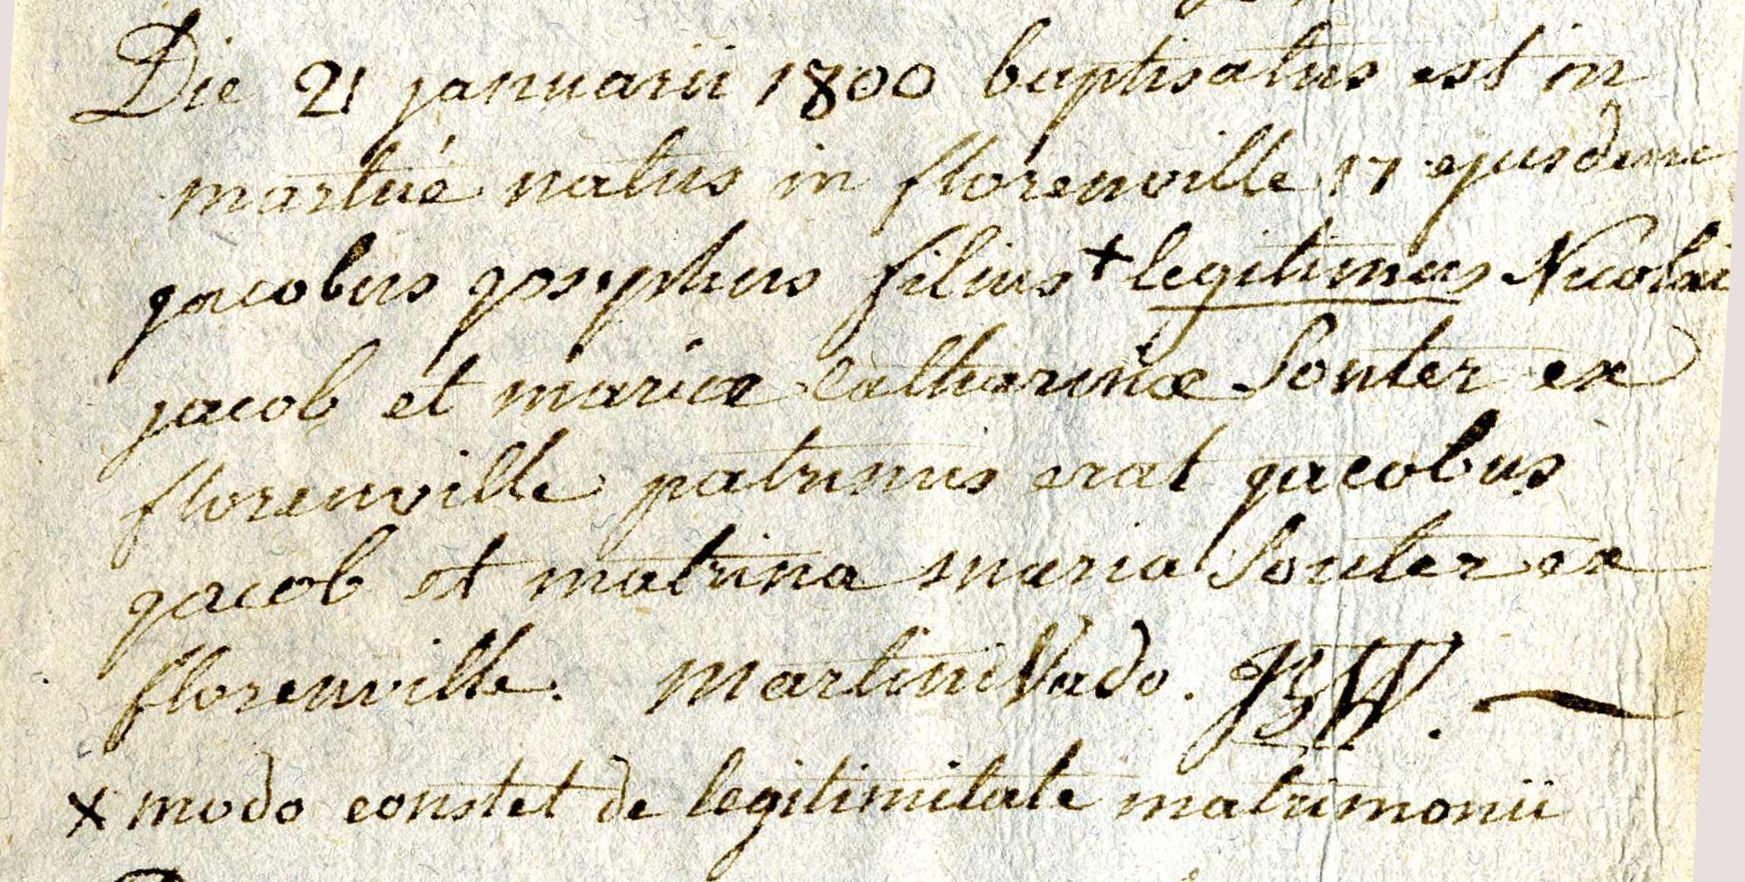 Die 21 januarii 1800 baptisatus est in
martué natus in florenville 17 ejusdem
jacobus josephus filius + legitimus Nicolai
jacob et mariæ Catharinæ Souter ex
florenville patrinus erat jacobus
jacob et matrina maria Souter ex
florenville. Martini Vado. JBW. —
x modo constet de legitimitate matrimonii